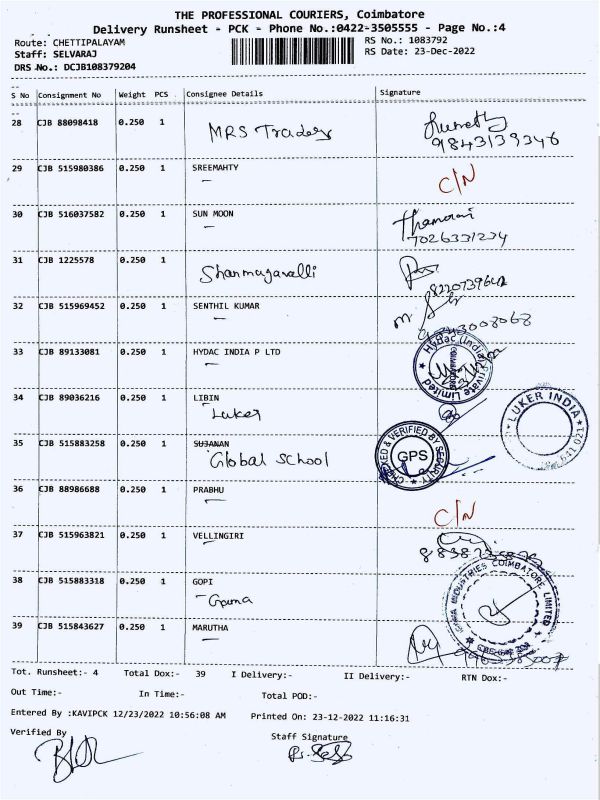 THE PROFESSIONAL COURIERS, Coimbatore
Delivery Runsheet - PCK - Phone No.:0422-3505555 - Page No.:4
Route: CHETTIPALAYAM
RS No.: 1083792
Staff: SELVARAJ
RS Date: 23-Dec-2022
DRS No.: DCJB108379204
S No Consignment No Weight PCS Consignee Details Signature
28 CJB 88098418 0.250 1 MRS Traders 9843139346
29 CJB 515980386 0.250 1 SREEMAHTY C/N
30 CJB 516037582 0.250 1 SUN MOON 7026331234
31 CJB 1225578 0.250 1 Shanmugavalli
32 CJB 515969452 0.250 1 SENTHIL KUMAR
33 CJB 89133081 0.250 1 HYDAC INDIA P LTD Hydac (India) Private Limited
34 CJB 89036216 0.250 1 LIBIN
Luker LUKER INDIA
35 CJB 515883258 0.250 1 SUJANAN
Global School CHECKED & VERIFIED BY SECURITY GPS
36 CJB 88986688 0.250 1 PRABHU C/N
37 CJB 515963821 0.250 1 VELLINGIRI
38 CJB 515883318 0.250 1 GOPI
INDUSTRIES COIMBATORE LIMITED
39 CJB 515843627 0.250 1 MARUTHA
Tot. Runsheet:- 4 Total Dox:- 39 I Delivery:- II Delivery:- RTN Dox:-
Out Time:- In Time:- Total POD:-
Entered By :KAVIPCK 12/23/2022 10:56:08 AM Printed On: 23-12-2022 11:16:31
Verified By
Staff Signature